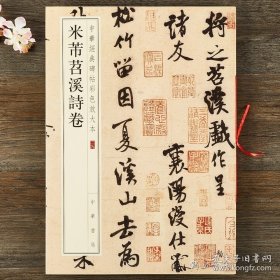 中華經典碑帖彩色放大本
米芾苕溪詩卷
中華書局
將之苕溪戲作呈
諸友 襄陽漫仕黻
松竹留因夏溪山去為